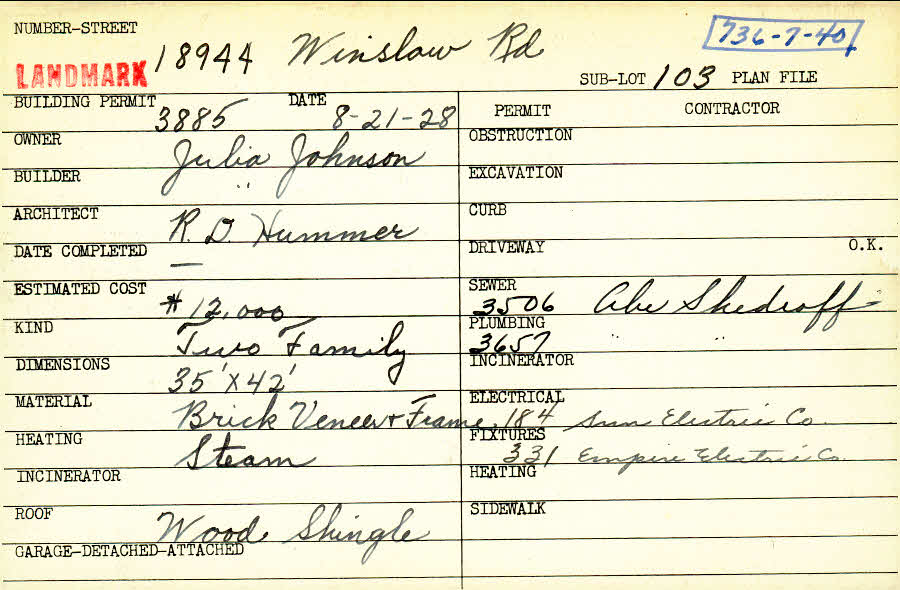 NUMBER-STREET 18944 Winslow Rd 736-7-40
LANDMARK SUB-LOT 103 PLAN FILE
BUILDING PERMIT 3885 DATE 8-21-28
OWNER Julia Johnson
BUILDER "
ARCHITECT R. D. Hummer
DATE COMPLETED —
ESTIMATED COST $12,000
KIND Two Family
DIMENSIONS 35' X 42'
MATERIAL Brick Veneer + Frame
HEATING Steam
INCINERATOR
ROOF Wood Shingle
GARAGE-DETACHED-ATTACHED
PERMIT CONTRACTOR
OBSTRUCTION
EXCAVATION
CURB
DRIVEWAY O.K.
SEWER 3506 Abe Skedroff
PLUMBING 3657 " "
INCINERATOR
ELECTRICAL 184 Sun Electric Co.
FIXTURES 331 Empire Electric Co.
HEATING
SIDEWALK